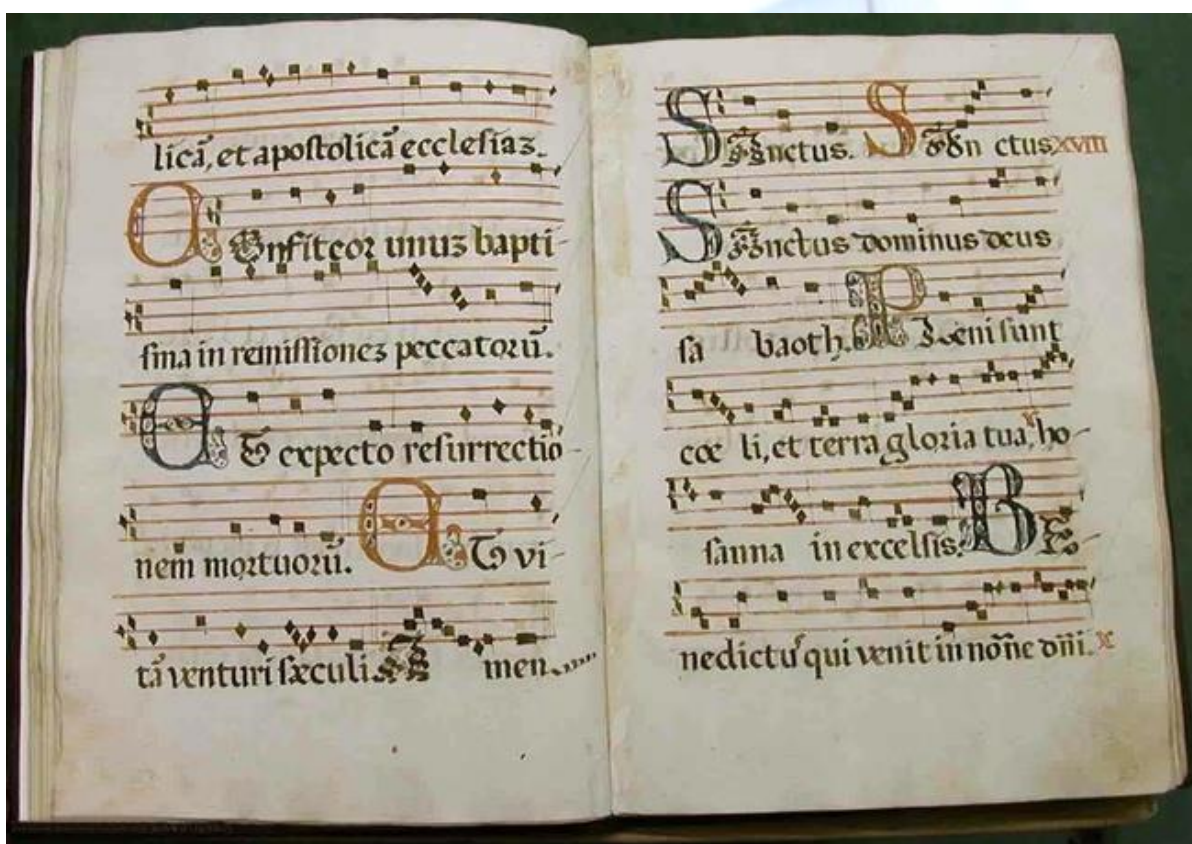 licā, et apostolicā ecclesiaz.
COnfiteor unuz bapti-
sma in remissionez peccatorū.
ET expecto resurrectiō-
nem mortuorū. ET vi-
tā venturi sæculi. A men.
SAnctus. SAn ctus XVIII
SAnctus dominus deus
sa baoth. PLeni sunt
cœ li, et terra gloria tua, ho-
sanna in excelsis. BE-
nedictu' qui venit in nōne dn̄i.